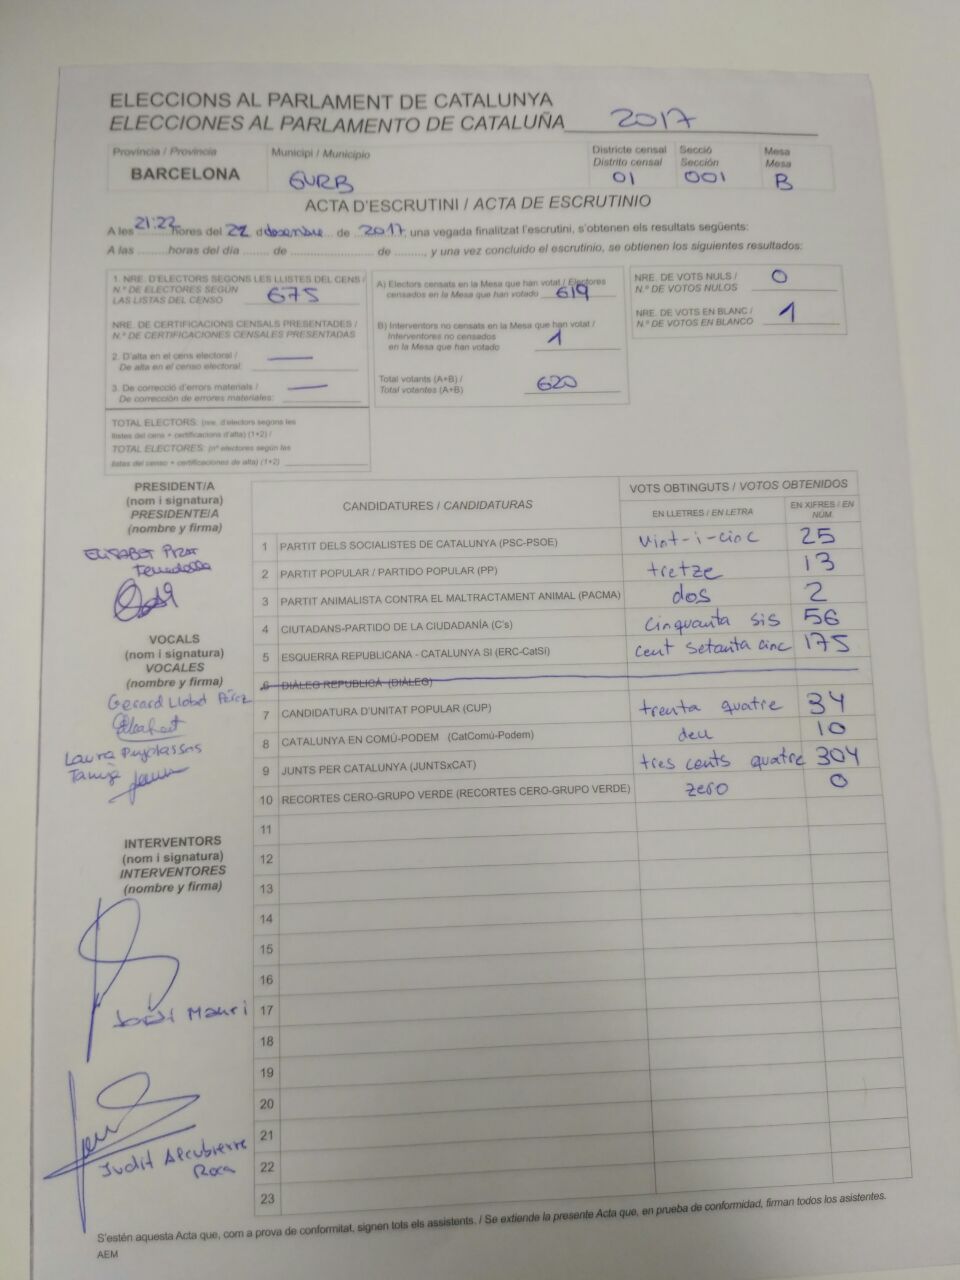 ELECCIONS AL PARLAMENT DE CATALUNYA
ELECCIONES AL PARLAMENTO DE CATALUÑA 2017
Provincia / Provincia
BARCELONA
Municipi / Municipio
GURB
Districte censal
Distrito censal
01
Secció
Sección
001
Mesa
Mesa
B
ACTA D'ESCRUTINI / ACTA DE ESCRUTINIO
A les 21:22 hores del 22 d desembre de 2017, una vegada finalitzat l'escrutini, s'obtenen els resultats següents:
A las ..........horas del día ....... de ........................ de ........, y una vez concluido el escrutinio, se obtienen los siguientes resultados:
1. NRE. D'ELECTORS SEGONS LES LLISTES DEL CENS /
N.º DE ELECTORES SEGÚN
LAS LISTAS DEL CENSO 675
NRE. DE CERTIFICACIONS CENSALS PRESENTADES /
N.º DE CERTIFICACIONES CENSALES PRESENTADAS
2. D'alta en el cens electoral /
De alta en el censo electoral: —
3. De correcció d'errors materials /
De corrección de errores materiales: —
TOTAL ELECTORS: (nre. d'electors segons les
llistes del cens + certificacions d'alta) (1+2) /
TOTAL ELECTORES: (nº electores según las
listas del censo + certificaciones de alta) (1+2)
A) Electors censats en la Mesa que han votat / Electores
censados en la Mesa que han votado 619
B) Interventors no censats en la Mesa que han votat /
Interventores no censados
en la Mesa que han votado 1
Total votants (A+B) /
Total votantes (A+B) 620
NRE. DE VOTS NULS /
N.º DE VOTOS NULOS 0
NRE. DE VOTS EN BLANC /
N.º DE VOTOS EN BLANCO 1
PRESIDENT/A
(nom i signatura)
PRESIDENTE/A
(nombre y firma)
ELISABET
VOCALS
(nom i signatura)
VOCALES
(nombre y firma)
Gerard Llobet Pérez
Laura Pujolassos
INTERVENTORS
(nom i signatura)
INTERVENTORES
(nombre y firma)
Jordi Mauri
Judit Alcubierre
Roca
CANDIDATURES / CANDIDATURAS
VOTS OBTINGUTS / VOTOS OBTENIDOS
EN LLETRES / EN LETRA
EN XIFRES / EN NÚM.
1 PARTIT DELS SOCIALISTES DE CATALUNYA (PSC-PSOE) vint-i-cinc 25
2 PARTIT POPULAR / PARTIDO POPULAR (PP) tretze 13
3 PARTIT ANIMALISTA CONTRA EL MALTRACTAMENT ANIMAL (PACMA) dos 2
4 CIUTADANS-PARTIDO DE LA CIUDADANÍA (C's) cinquanta sis 56
5 ESQUERRA REPUBLICANA - CATALUNYA SI (ERC-CatSí) cent setanta cinc 175
6 DIÀLEG REPUBLICÀ (DIÀLEG)
7 CANDIDATURA D'UNITAT POPULAR (CUP) trenta quatre 34
8 CATALUNYA EN COMÚ-PODEM (CatComú-Podem) deu 10
9 JUNTS PER CATALUNYA (JUNTSxCAT) tres cents quatre 304
10 RECORTES CERO-GRUPO VERDE (RECORTES CERO-GRUPO VERDE) zero 0
11
12
13
14
15
16
17
18
19
20
21
22
23
S'estén aquesta Acta que, com a prova de conformitat, signen tots els assistents. / Se extiende la presente Acta que, en prueba de conformidad, firman todos los asistentes.
AEM